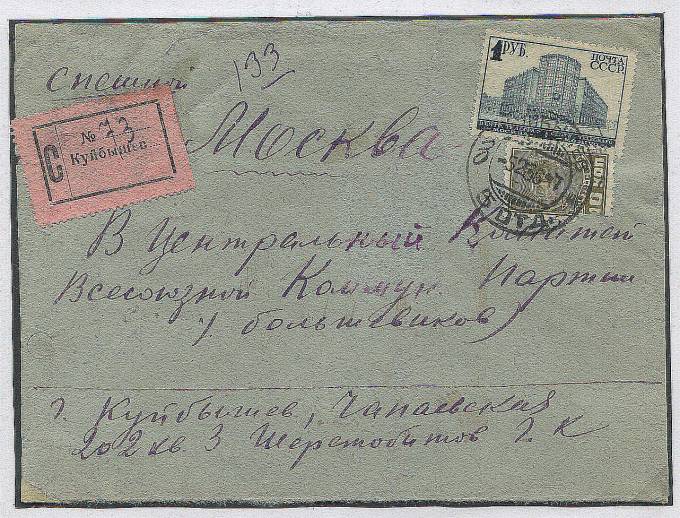 спешной 133
1 РУБ. ПОЧТА
СССР
№ 73
С Куйбышев
Москва
10 КОП.
-5236-7
В Центральный Комитет
Всесоюзной Коммун. Партии
(большевиков)
г. Куйбышев, Чапаевская
202 кв. 3 Шерстобитов Г. К